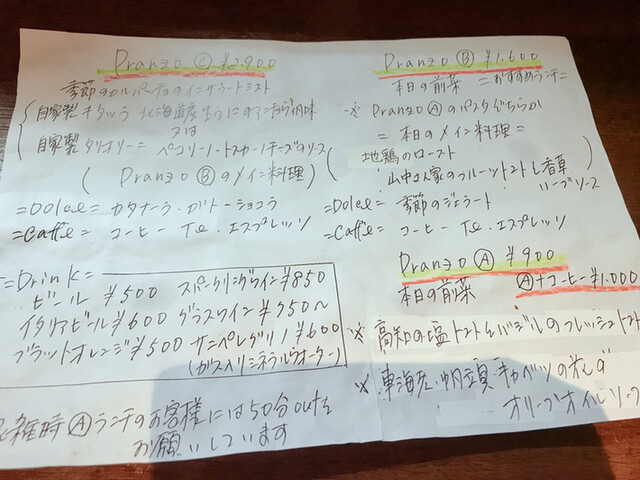 Pranzo Ⓒ ¥2,900
季節のカルパッチョのインサラータミスト
自家製キタッラ 北海道産生うにのアンチョビ風味
又は
自家製タリオリーニ ペコリーノトスカーノチーズのソース
(Pranzo Ⓑのメイン料理)
=Dolce= カタラーナ・ガトーショコラ
=Caffe= コーヒー・Te・エスプレッソ
=Drink=
ビール ¥500 スパークリングワイン¥850
イタリアビール¥600 グラスワイン¥750〜
ブラッドオレンジ¥500 サンペレグリノ¥600
(ガス入りミネラルウォーター)
混雑時Ⓐランチのお客様には50分outを
お願いしています
Pranzo Ⓑ ¥1,600
本日の前菜 =おすすめランチ=
※ Pranzo Ⓐのパスタどちらか
=本日のメイン料理=
地鶏のロースト
山中さん家のフルーツトマトと香草
ハーブソース
=Dolce= 季節のジェラート
=Caffe= コーヒー・Te・エスプレッソ
Pranzo Ⓐ ¥900
本日の前菜 Ⓐ+コーヒー¥1,000
※ 高知の塩トマトとバジルのフレッシュトマト
※ 東海産 帆立貝 キャベツの
オリーブオイルソース